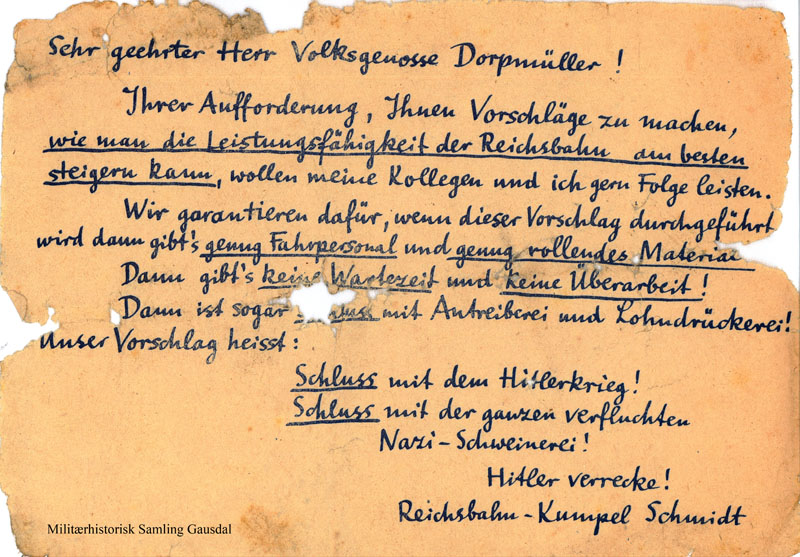 Sehr geehrter Herr Volksgenosse Dorpmüller!
Ihrer Aufforderung, Ihnen Vorschläge zu machen,
wie man die Leistungsfähigkeit der Reichsbahn am besten
steigern kann, wollen meine Kollegen und ich gern Folge leisten.
Wir garantieren dafür, wenn dieser Vorschlag durchgeführt
wird dann gibt's genug Fahrpersonal und genug rollendes Material
Dann gibt's keine Wartezeit und keine Überarbeit!
Dann ist sogar Schluss mit Antreiberei und Lohndrückerei!
Unser Vorschlag heisst:
Schluss mit dem Hitlerkrieg!
Schluss mit der ganzen verfluchten
Nazi-Schweinerei!
Hitler verrecke!
Reichsbahn-Kumpel Schmidt
Militærhistorisk Samling Gausdal